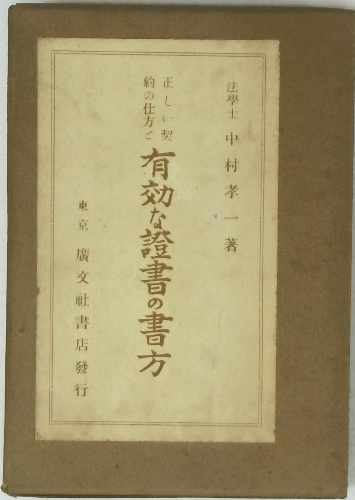 法學士 中村孝一著
正しい契
約の仕方と
有効な證書の書方
東京 廣文社書店發行